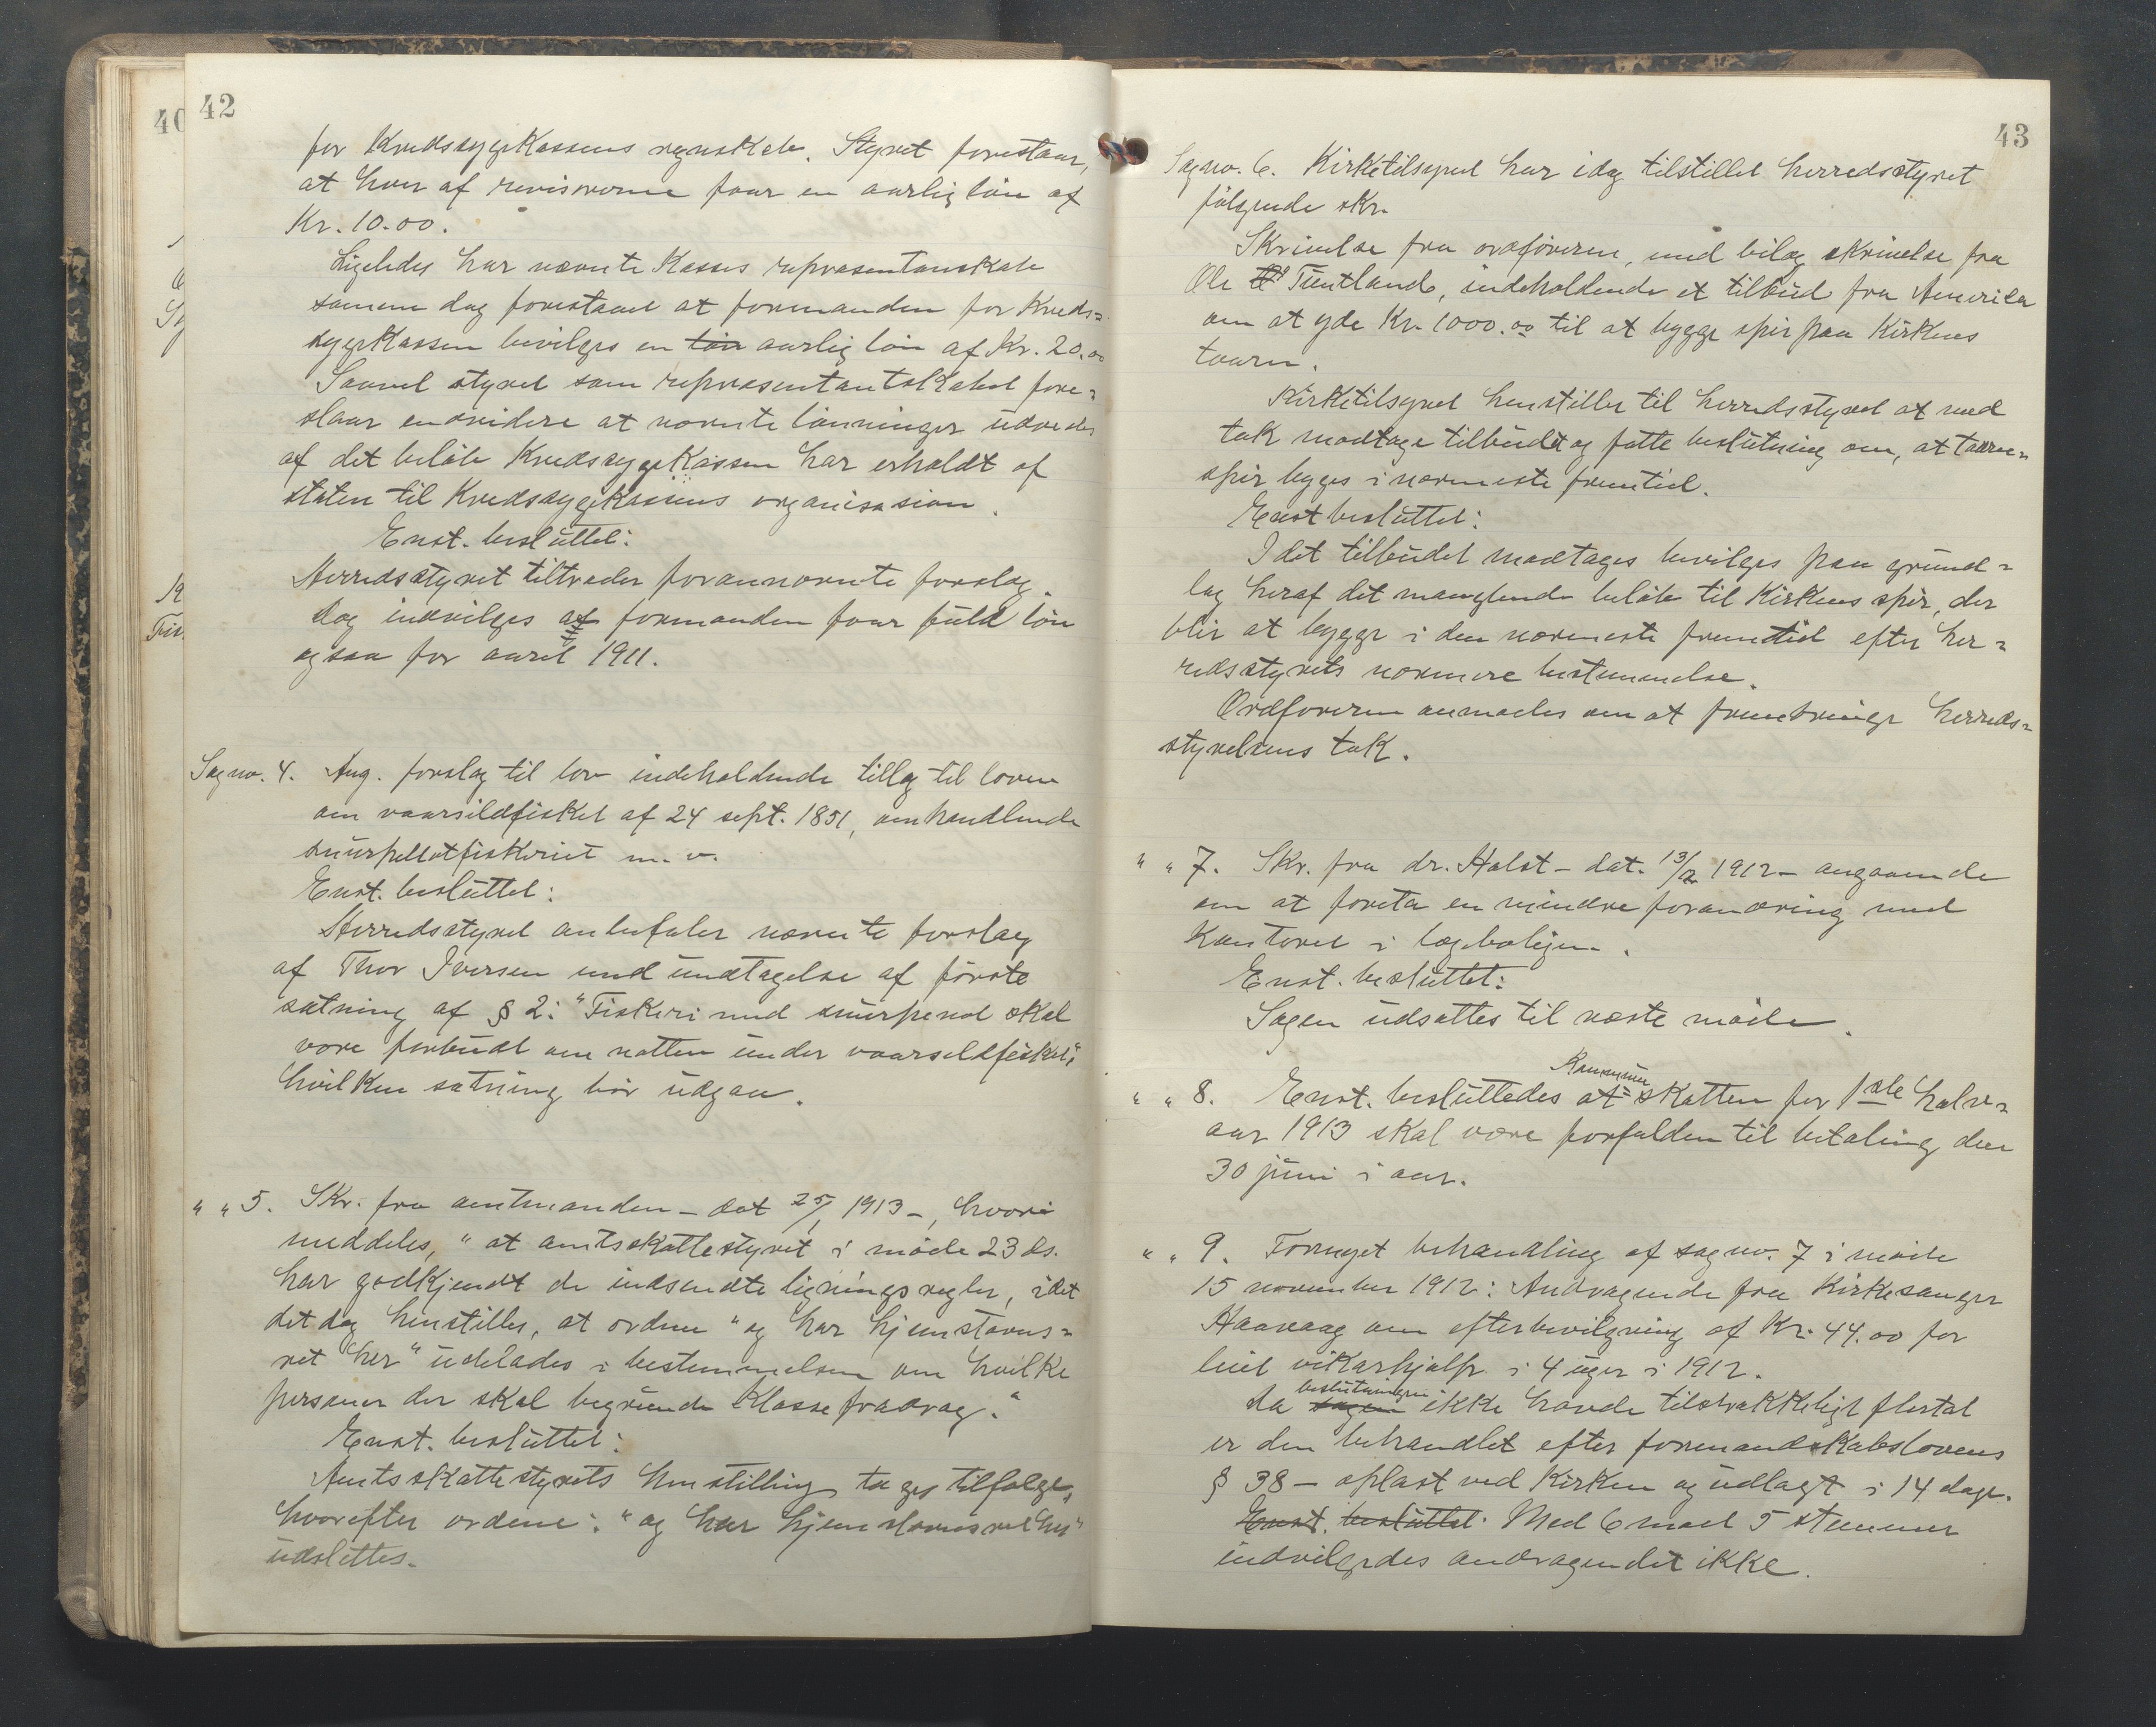 42
for Kredssygekassens regnskab. Styret forestaar,
at hver af revisorerne faar en aarlig løn af
Kr. 10.00.
Ligeledes har nævnte Kasses repræsentanskab
samme dag forestaaet at formanden for Kreds=
sygekassen bevilges en løn aarlig løn af Kr. 20.00
Saavel styret som repræsentantskabet fore=
slaar endvidere at nævnte lønninger udredes
af det beløb Kredssygekassen har erholdt af
staten til Kredssygekassens organisasion.
Enst. besluttet:
Herredsstyret tiltræder forannævnte forslag.
Dog indvilges at formanden faar fuld løn
ogsaa for aaret 1911.
Sag no. 4. Ang. forslag til lov indeholdende tillæg til loven
om vaarsildfisket af 24 sept. 1851, omhandlende
snurpenotfiskeriet m. v.
Enst. besluttet:
Herredsstyret anbefaler nævnte forslag
af Thor Iversen med undtagelse af første
sætning af § 2: "Fiskeri med snurpenot skal
være forbudt om natten under vaarsildfisket",
hvilken sætning bør udgaa.
" " 5. Skr. fra amtmanden – dat 25/1 1913 –, hvori
meddeles, "at amtsskattestyret i møde 23 ds.
har godkjendt de indsendte ligningsregler, idet
det dog henstilles, at ordene "og har hjemstavns=
ret her" udelades i bestemmelsen om hvilke
personer der skal begrunde Klassefradrag."
Enst. besluttet:
Amtsskattestyrets henstilling tages tilfølge,
hvorefter ordene: "og har hjemstavnsret her"
udslettes.
43
Sag no. 6. Kirketilsynet har idag tilstillet herredsstyret
følgende skr.
Skrivelse fra ordføreren, med bilag skrivelse fra
Ole Tuntland, indeholdende et tilbud fra Amerika
om at yde Kr. 1000.00 til at bygge spir paa Kirkens
taarn.
Kirketilsynet henstiller til herredsstyret at med
tak modtage tilbudet og fatte beslutning om, at taarn=
spir bygges i nærmeste fremtid.
Enst besluttet:
I det tilbudet modtages bevilges paa grund=
lag heraf det manglende beløb til Kirkens spir, der
blir at bygge i den nærmeste fremtid efter her=
redsstyrets nærmere bestemmelse.
Ordføreren anmodes om at frembringe herreds=
styrelsens tak.
" " 7. Skr. fra dr. Holst – dat. 13/2 1912 – angaaende
om at foreta en mindre forandring med
Kontoret i lægeboligen.
Enst. besluttet:
Sagen udsættes til næste møde.
Kommune
" " 8. Enst. besluttedes at skatten for 1ste halv=
aar 1913 skal være forfalden til betaling den
30 juni i aar.
" " 9. Fornyet behandling af sag no. 7 i møde
15 november 1912: Andragende fra Kirkesanger
Haavaag om efterbevilgning af Kr. 44.00 for
leiet vikarhjælp i 4 uger i 1912.
beslutningen
Da sagen ikke havde tilstrækkeligt flertal
er den behandlet efter formandskabslovens
§ 38 – oplæst ved Kirken og udlagt i 14 dage.
Enst. besluttet. Med 6 mod 5 stemmer
indvilgedes andragendet ikke.